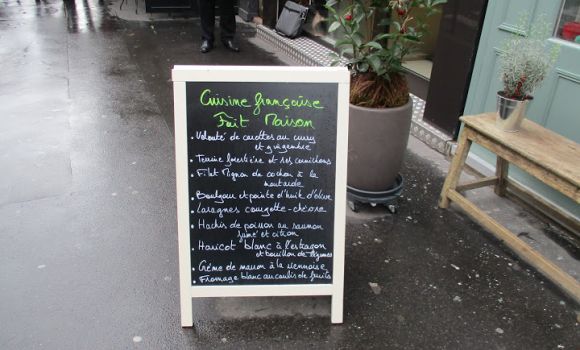 Cuisine française
Fait Maison
• Velouté de carottes au curry
et gingembre
• Terrine forestière et ses cornichons
• Filet Mignon de cochon à la
moutarde
• Boulgour et pointe d'huile d'olive
• Lasagnes courgette-chèvre
• Hachis de poisson au saumon
fumé et citron
• Haricot blanc à l'estragon
et bouillon de légumes
• Crème de marron à la viennoise
• Fromage blanc au coulis de fruits